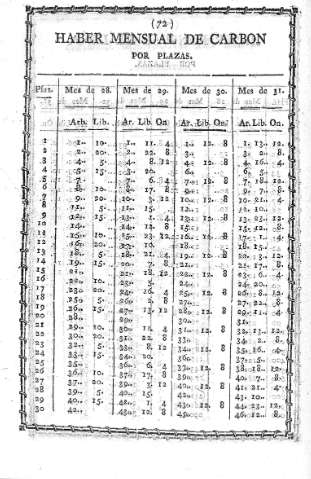 (72)
HABER MENSUAL DE CARBON
POR PLAZAS.
Plzas. Mes de 28. Mes de 29. Mes de 30. Mes de 31.
Arb. Lib. Ar. Lib. On. Ar. Lib. On. Ar. Lib. On.
1 1.. 10. 1.. 11. 4 1.. 12. 8 1. 13. 12.
2 2.. 20. 2.. 22. 8 3.. 3. 2. 8.
3 4.. 5. 4.. 8. 12 4.. 12. 8 4. 16. 4.
4 5.. 15. 5.. 20. 6.. 6. 5.
5 7.. 7.. 6. 4 7.. 12. 8 7. 18. 12.
6 8.. 10. 8.. 17. 8 9.. 9. 7. 8.
7 9.. 20. 10.. 3. 12 10.. 12. 8 10. 21. 4.
8 11.. 5. 11.. 15. 12.. 12. 10.
9 12.. 15. 13.. 1. 4 13.. 12. 8 13. 23. 12.
10 14.. 14.. 12. 8 15.. 15. 12. 8.
11 15.. 10. 15.. 23. 12 16.. 12. 8 17. 1. 4.
12 16.. 20. 17.. 10. 18.. 18. 15.
13 18.. 5. 18.. 21. 4 19.. 12. 8 20. 3. 12.
14 19.. 15. 20.. 7. 8 21.. 21. 17. 8.
15 21.. 21.. 18. 12 22.. 12. 8 23. 6. 4.
16 22.. 10. 23.. 5. 24.. 24. 20.
17 23.. 20. 24.. 16. 4 25.. 12. 8 26. 8. 12.
18 25.. 5. 26.. 2. 8 27.. 27. 22. 8.
19 26.. 15. 27.. 13. 12 28.. 12. 8 29. 11. 4.
20 28.. 29.. 30.. 31.
21 29.. 10. 30.. 11. 4 31.. 12. 8 32. 13. 12.
22 30.. 20. 31.. 22. 8 33.. 34. 2. 8.
23 32.. 5. 33.. 8. 12 34.. 12. 8 35. 16. 4.
24 33.. 15. 34.. 20. 36.. 37. 5.
25 35.. 36.. 6. 4 37.. 12. 8 38. 18. 12.
26 36.. 10. 37.. 17. 8 39.. 40. 7. 8.
27 37.. 20. 39.. 3. 12 40.. 12. 8 41. 21. 4.
28 39.. 5. 40.. 15. 42.. 43. 10.
29 40.. 15. 42.. 1. 4 43.. 12. 8 44. 23. 12.
30 42.. 43.. 12. 8 45.. 46. 12. 8.